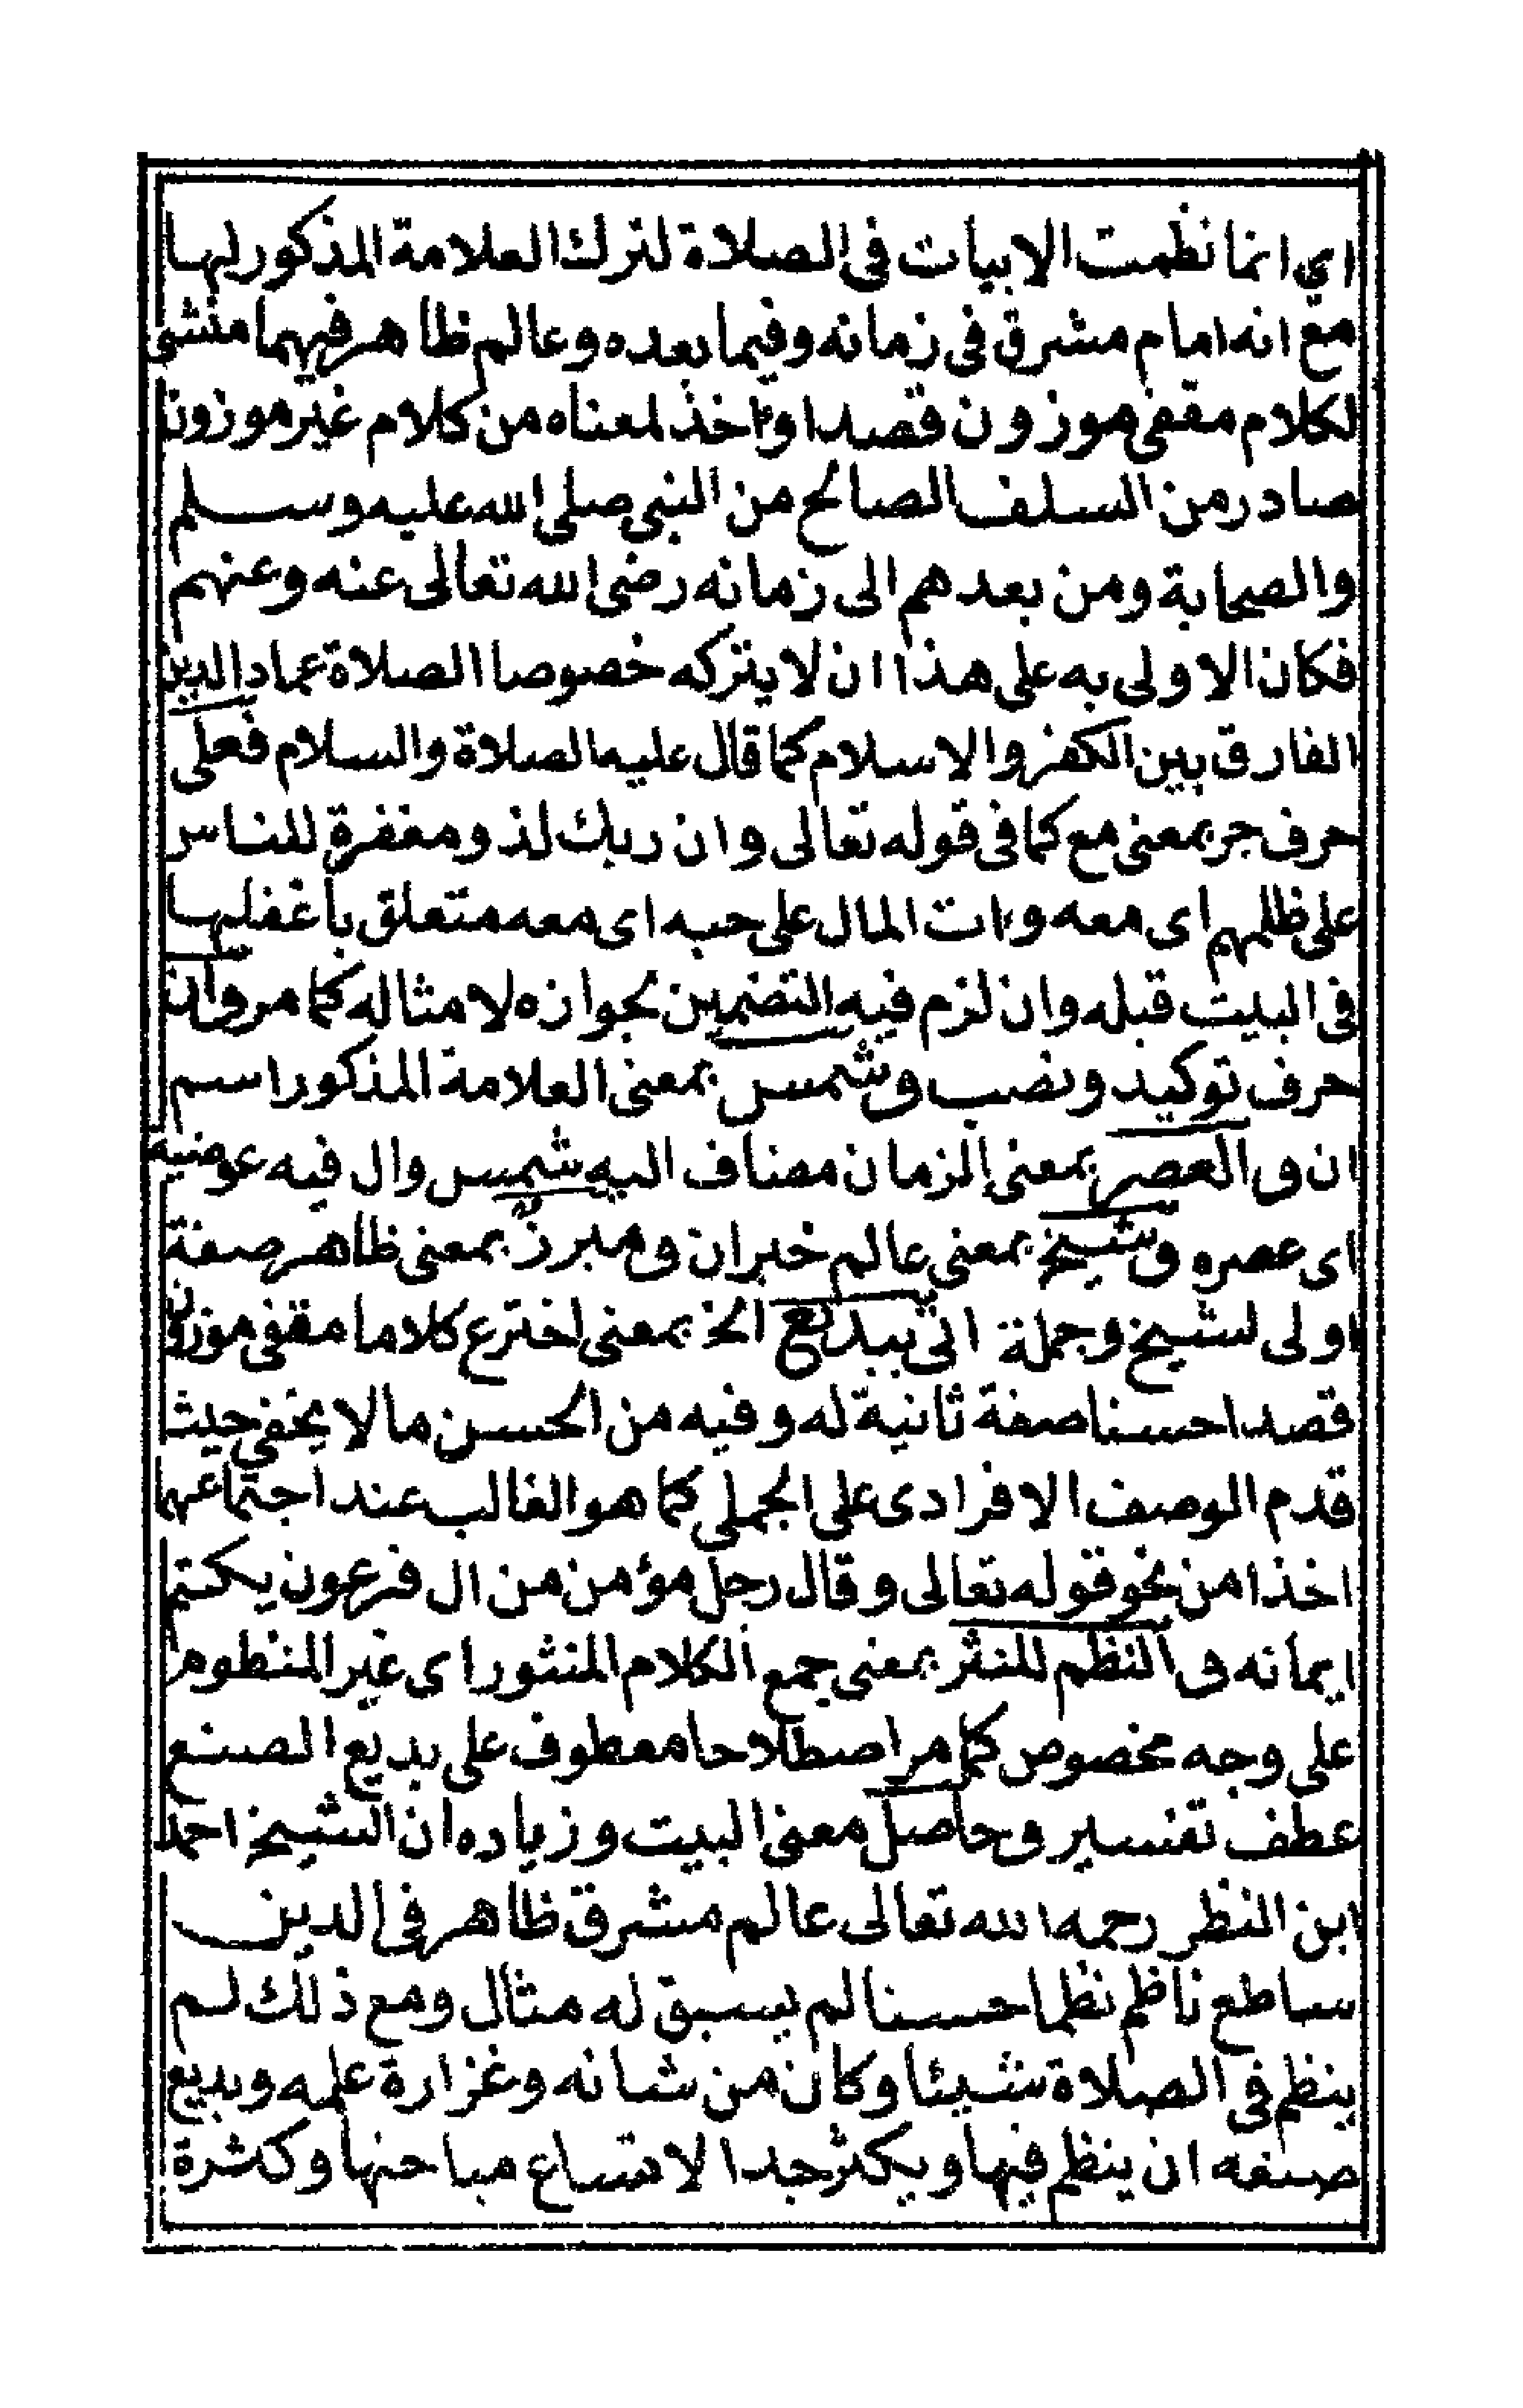 اي انما نظمت الابيات في الصلاة لترك العلامة المذكور لها
مع انه امام مشرق في زمانه وفيما بعده وعالم ظاهر فيهما منشئ
لكلام مقفى موزون قصدا وءاخذ لمعناه من كلام غير موزون
صادر من السلف الصالح من النبي صلى الله عليه وسلم
والصحابة ومن بعدهم الى زمانه رضى الله تعالى عنه وعنهم
فكان الاولى به على هذا ان لا يتركه خصوصا الصلاة عماد الدين
الفارق بين الكفر والاسلام كما قال عليه الصلاة والسلام فعلى
حرف جر بمعنى مع كما في قوله تعالى وان ربك لذو مغفرة للناس
على ظلمهم اى معه وءات المال على حبه اى معه متعلق بأغفلها
في البيت قبله وان لزم فيه التضمين لجوازه لامثاله كما مر وأن
حرف توكيد ونصب وشمس بمعنى العلامة المذكور اسم
ان والعصر بمعنى الزمان مضاف اليه شمس وال فيه عوضية
اى عصره وشيخ بمعنى عالم خبر ان ومبرز بمعنى ظاهر صفة
اولى لشيخ وجملة اتى ببديع الخ بمعنى اخترع كلاما مقفى موزون
قصدا حسنا صفة ثانية له وفيه من الحسن ما لا يخفى حيث
قدم الوصف الافرادى على الجملى كما هو الغالب عند اجتماعهما
اخذا من نحو قوله تعالى وقال رجل مؤمن من ال فرعون يكتم
ايمانه والنظم للنثر بمعنى جمع الكلام المنثور اى غير المنظوم
على وجه مخصوص كما مر اصطلاحا معطوف على بديع الصنع
عطف تفسير وحاصل معنى البيت وزياده ان الشيخ احمد
ابن النظر رحمه الله تعالى عالم مشرق ظاهر في الدين
ساطع ناظم نظما حسنا لم يسبق له مثال ومع ذلك لم
ينظم في الصلاة شيئا وكان من شانه وغزارة علمه وبديع
صنعه ان ينظم فيها ويكثر جدا لاتساع مباحثها وكثرة